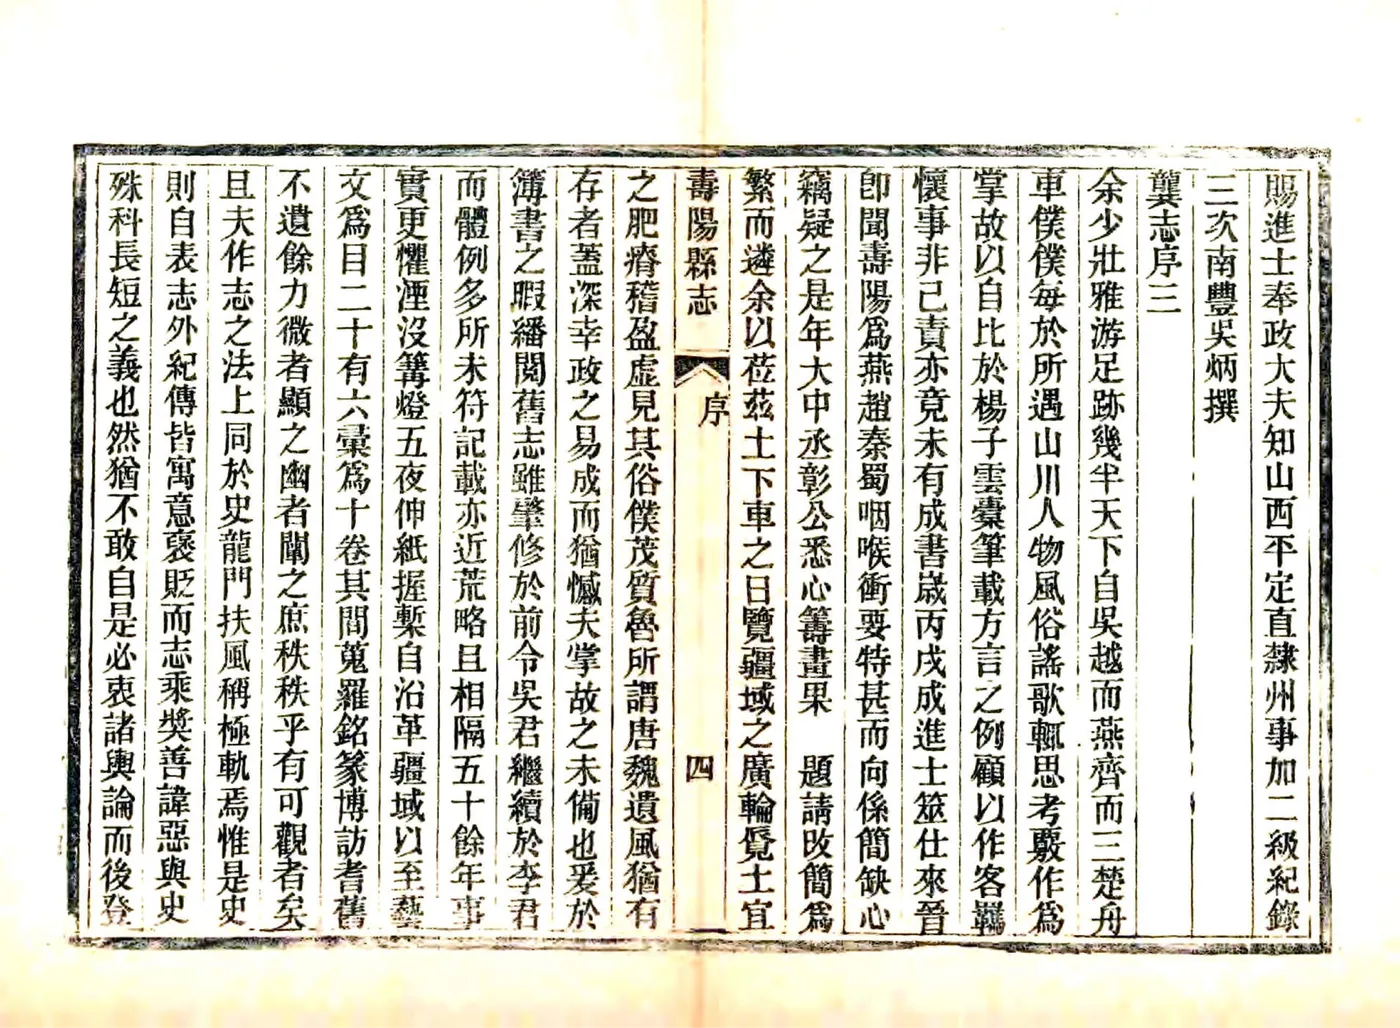 賜進士奉政大夫知山西平定直隸州事加二級紀錄
三次南豐吳炳撰
龔志序三
余少壯雅游足跡幾半天下自吳越而燕齊而三楚舟
車僕僕每於所遇山川人物風俗謠歌輒思考覈作爲
掌故以自比於楊子雲槖筆載方言之例顧以作客羈
懷事非己責亦竟未有成書嵗丙戌成進士筮仕來晉
卽聞壽陽爲燕趙秦蜀咽喉衝要特甚而向係簡缺心
竊疑之是年大中丞彰公悉心籌畫果　題請改簡爲
繁而遴余以莅茲土下車之日覽疆域之廣輪覺土宜
壽陽縣志
序
四
之肥瘠稽盈虛見其俗僕茂質魯所謂唐魏遺風猶有
存者蓋深幸政之易成而猶憾夫掌故之未備也爰於
簿書之暇繙閱舊志雖肇修於前令吳君繼續於李君
而體例多所未符記載亦近荒略且相隔五十餘年事
實更懼湮沒篝燈五夜伸紙握槧自沿革疆域以至藝
文爲目二十有六彙爲十卷其間蒐羅銘篆博訪耆舊
不遺餘力微者顯之幽者闡之庶秩秩乎有可觀者矣
且夫作志之法上同於史龍門扶風稱極軌焉惟是史
則自表志外紀傳皆寓意褒貶而志乘奬善諱惡與史
殊科長短之義也然猶不敢自是必衷諸輿論而後登